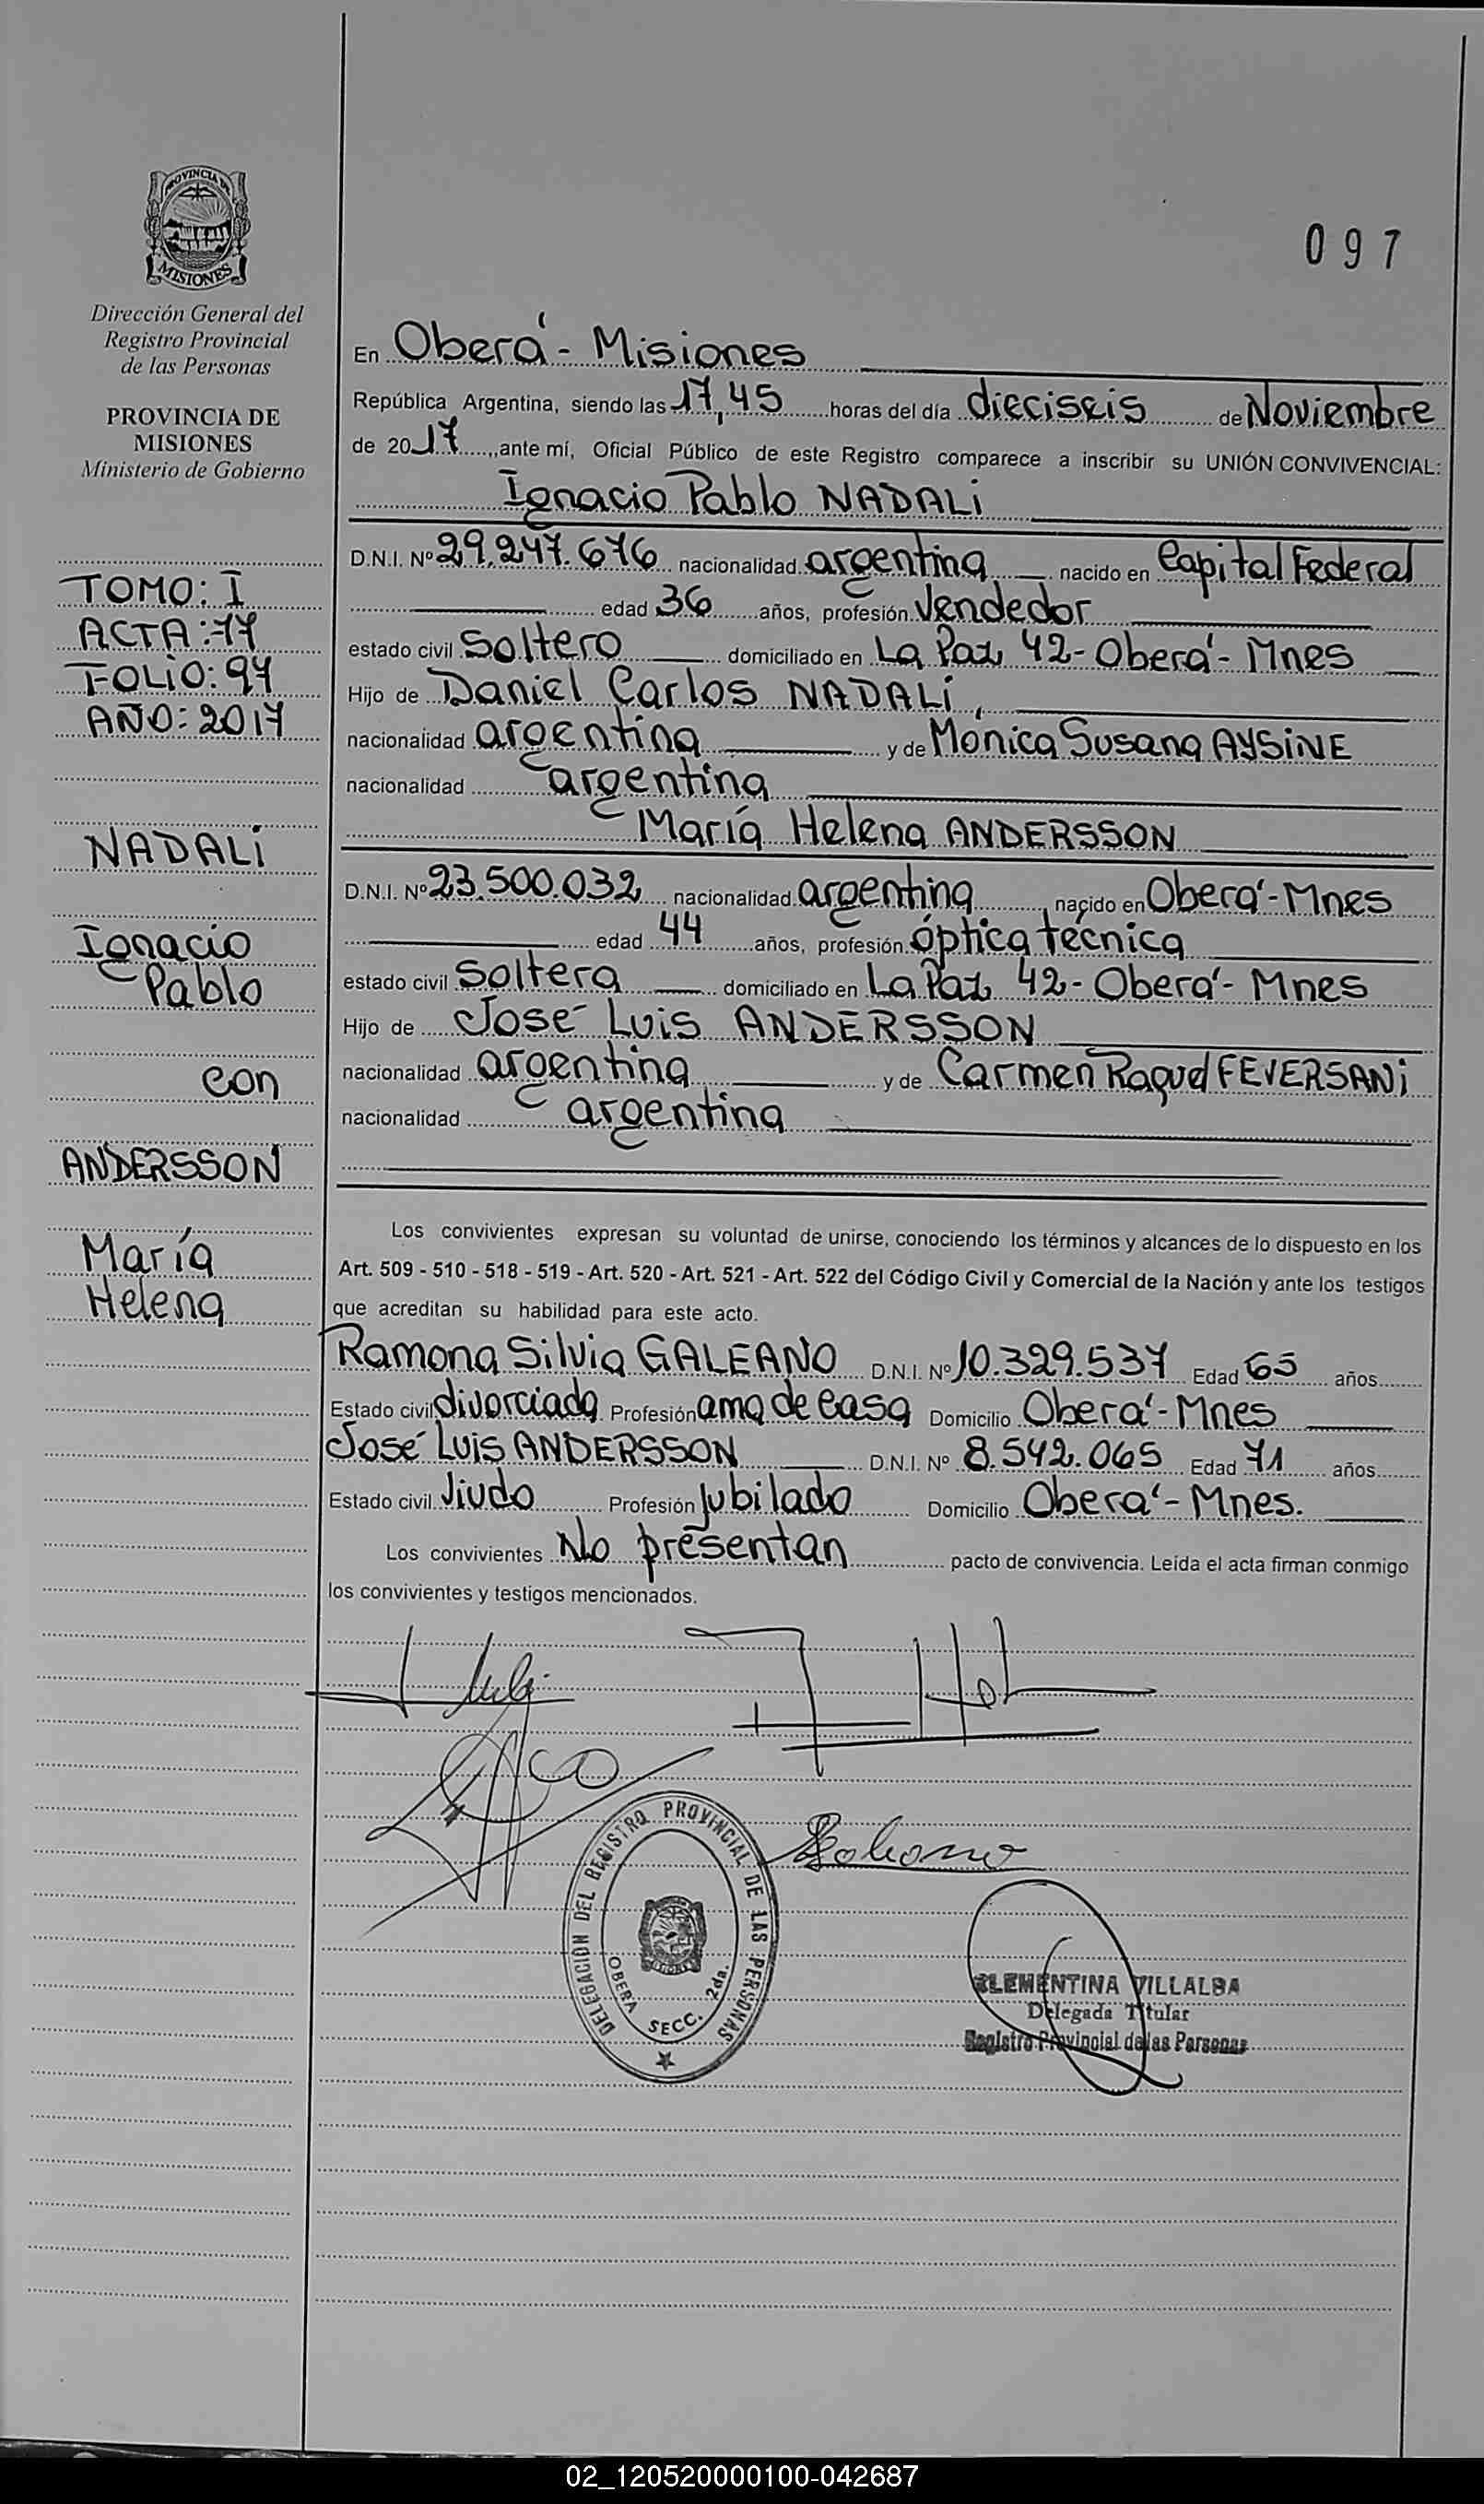 PROVINCIA DE
MISIONES
Dirección General del
Registro Provincial
de las Personas
PROVINCIA DE
MISIONES
Ministerio de Gobierno
TOMO: I
ACTA: 77
FOLIO: 97
AÑO: 2017
NADALI
Ignacio
Pablo
con
ANDERSSON
María
Helena
097
En Oberá - Misiones
República Argentina, siendo las 17,45 horas del día dieciseis de Noviembre
de 2017, ante mí, Oficial Público de este Registro comparece a inscribir su UNIÓN CONVIVENCIAL:
Ignacio Pablo NADALI
D.N.I. Nº 29.247.676 nacionalidad argentina nacido en Capital Federal
edad 36 años, profesión Vendedor
estado civil Soltero domiciliado en La Paz 42 - Oberá - Mnes
Hijo de Daniel Carlos NADALI,
nacionalidad argentina y de Mónica Susana AYSINE
nacionalidad argentina
María Helena ANDERSSON
D.N.I. Nº 23.500.032 nacionalidad argentina nacido en Oberá - Mnes
edad 44 años, profesión óptica técnica
estado civil Soltera domiciliado en La Paz 42 - Oberá - Mnes
Hijo de José Luis ANDERSSON
nacionalidad argentina y de Carmen Raquel FEVERSANI
nacionalidad argentina
Los convivientes expresan su voluntad de unirse, conociendo los términos y alcances de lo dispuesto en los
Art. 509 - 510 - 518 - 519 - Art. 520 - Art. 521 - Art. 522 del Código Civil y Comercial de la Nación y ante los testigos
que acreditan su habilidad para este acto.
Ramona Silvia GALEANO D.N.I. Nº 10.329.537 Edad 65 años
Estado civil divorciada Profesión ama de casa Domicilio Oberá - Mnes
José Luis ANDERSSON D.N.I. Nº 8.542.065 Edad 71 años
Estado civil Viudo Profesión Jubilado Domicilio Oberá - Mnes.
Los convivientes No presentan pacto de convivencia. Leída el acta firman conmigo
los convivientes y testigos mencionados.
DELEGACION DEL REGISTRO PROVINCIAL DE LAS PERSONAS
OBERA SECC. 2da.
CLEMENTINA VILLALBA
Delegada Titular
Registro Provincial de las Personas
02_120520000100-042687